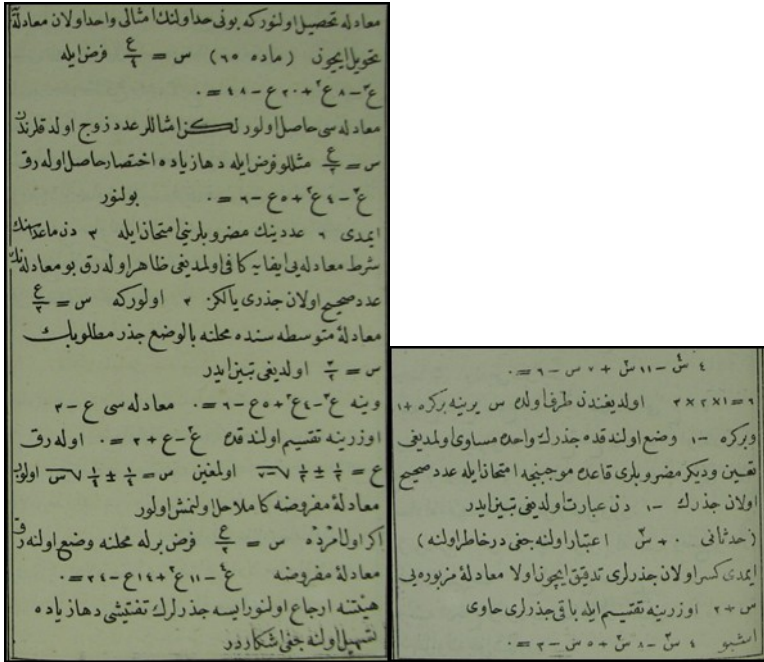 ٤ س٤ − ١١ س٢ + ٧ س − ٦ = ٠
٦ = ١ × ٢ × ٣ اولدیغندن طرف اولده س یرینه برکره + ١
وبرکره − ١ وضع اولندقده جذرك واحده مساوی اولمدیغی
تعین ودیکر مضروبلری قاعده موجبنجه امتحان ایله عدد صحیح
اولان جذرك − ٢ دن عبارت اولدیغی تبین ایدر
(حدثانی ٠ + س٣ اعتبار اولنه جغی درخاطر اولنه)
ایمدی کسر اولان جذرلری تدقیق ایچون اولا معادلهٔ مزبوره یی
س + ٢ اوزرینه تقسیم ایله باقی جذرلری حاوی
اشبو ٤ س٣ − ٨ س٢ + ٥ س − ٣ = ٠
معادله تحصیل اولنورکه بونی حد اولنك امثالی واحد اولان معادلهٔ
تحویل ایچون (ماده ٦٥) س = ع/٤ فرض ایله
ع٣ − ٨ ع٢ + ٢٠ ع − ٤٨ = ٠
معادله سی حاصل اولور لکن امثاللر عدد زوج اولدقلرندن
س = ع/٢ مثللو فرض ایله دها زیاده اختصار حاصل اوله رق
ع٣ − ٤ ع٢ + ٥ ع − ٦ = ٠ بولنور
ایمدی ٦ عددینك مضروبلرینی امتحان ایله ٣ دن ماعداسنك
شرط معادله یی ایفایه کافی اولمدیغی ظاهر اوله رق بو معادله نك
عدد صحیح اولان جذری یالکز ٣ اولورکه س = ع/٢
معادلهٔ متوسطه سنده محلنه بالوضع جذر مطلوبك
س = ٣/٢ اولدیغی تبین ایدر
وینه ع٣ − ٤ ع٢ + ٥ ع − ٦ = ٠ معادله سی ع − ٣
اوزرینه تقسیم اولندقده ع٢ − ع + ٢ = ٠ اوله رق
ع = ١/٢ ± ١/٢ √−٧ اولمغین س = ١/٤ ± ١/٤ √−٧ اولوب
معادلهٔ مفروضه کاملا حل اولنمش اولور
اکر اول امرده س = ع/٢ فرض برله محلنه وضع اولنه رق
معادلهٔ مفروضه ع٤ − ١١ ع٢ + ١٤ ع − ٢٤ = ٠
هیئتنه ارجاع اولنور ایسه جذرلرك تفتیشی دها زیاده
تسهیل اولنه جغی اشکاردر